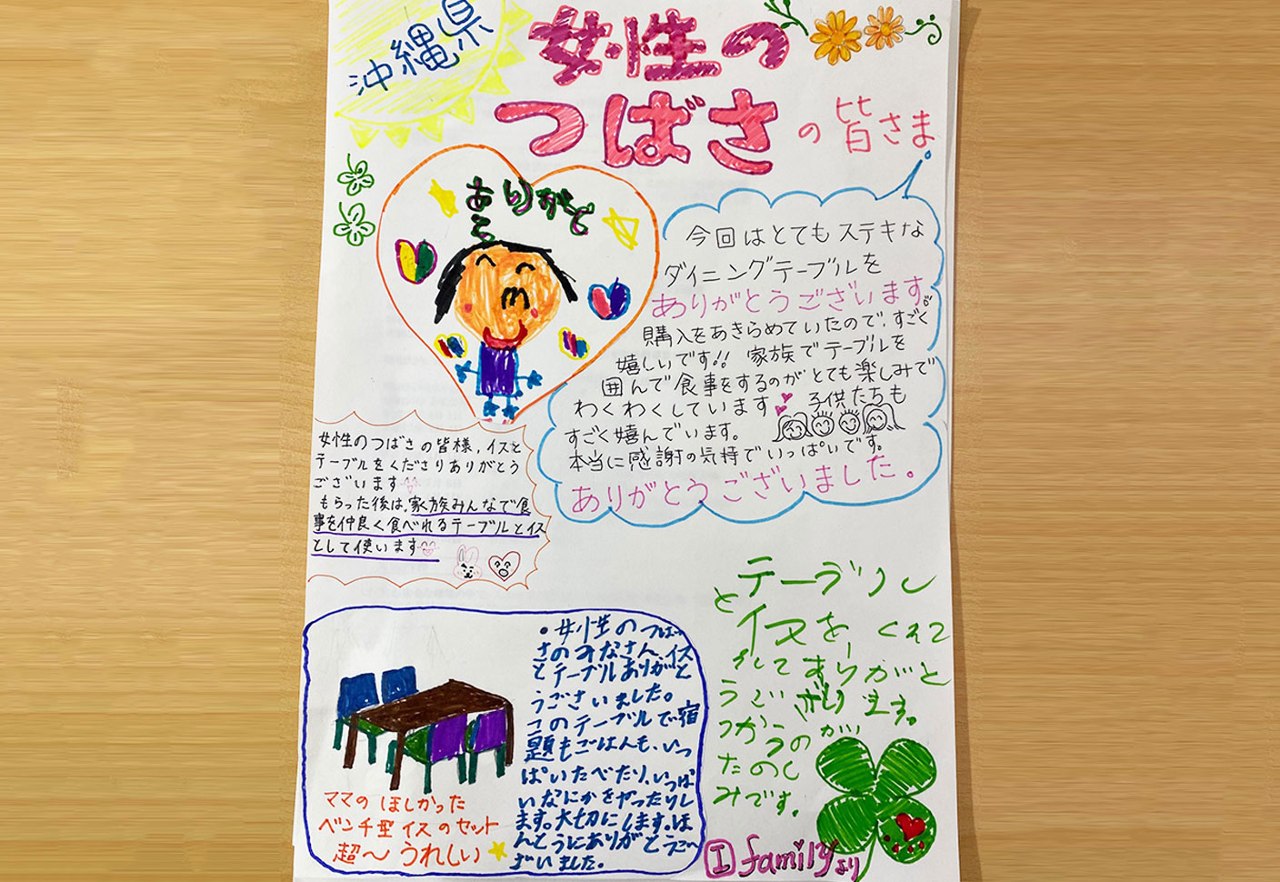 沖縄県
女性の
つばさ
の皆さま
ありがとう
今回はとてもステキな
ダイニングテーブルを
ありがとうございます。
購入をあきらめていたので、すごく
嬉しいです!! 家族でテーブルを
囲んで食事をするのがとても楽しみで
わくわくしています 子供たちも
すごく嬉んでいます。
本当に感謝の気持でいっぱいです。
ありがとうございました。
女性のつばさの皆様、イスと
テーブルをくださりありがとう
ございます
もらった後は、家族みんなで食
事を仲良く食べれるテーブルとイス
として使います
・女性のつば
さのみなさん、イス
とテーブルありがと
うございました。
このテーブルで宿
題もごはんも、いっ
ぱいたべたり、いっぱ
いなにかをやったりし
ます。大切にします。ほ
んとうにありがとうご
ざいました。
ママのほしかった
ベンチ型イスのセット
超〜うれしい
テーブル
と
イスを、くれて
そしてありがと
うござります。
つかうのが
たのし
みです。
I familyより